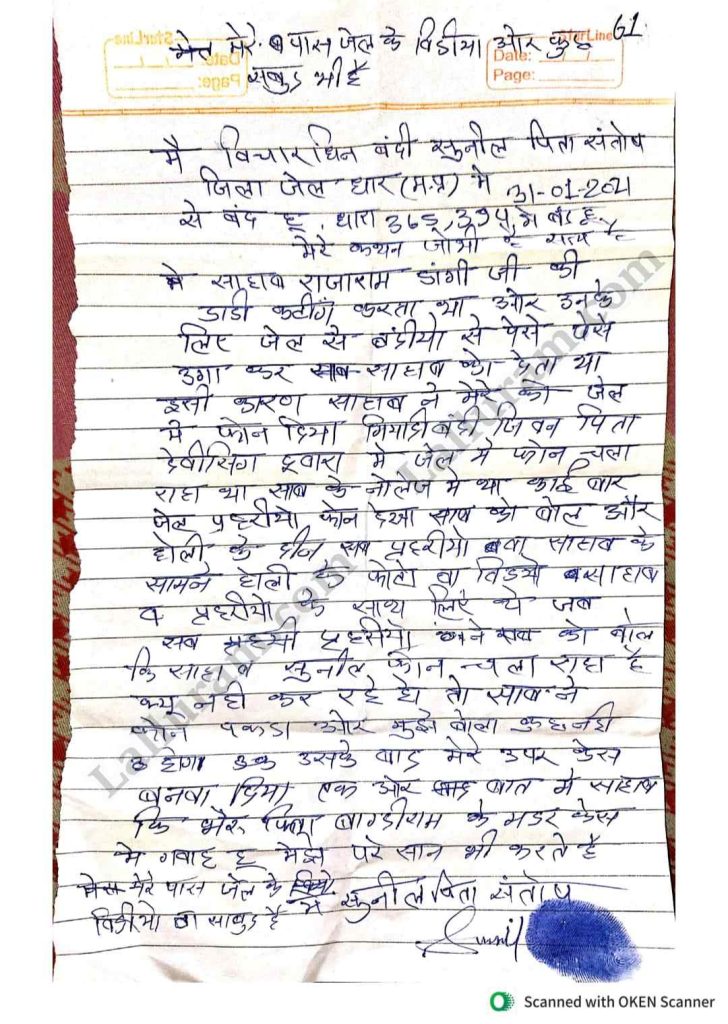 61
StarLine
Date:
Page:
मेरे पास जेल के विडीया ओर कुछ
सबुड भी है
मै विचारधिन बंदी सुनील पिता संतोष
जिला जेल धार (म.प्र) मे 31-01-2021
से बंद हू . धारा 365, 394, मे बंद हू
मेरे कथन जोभी है सत्य है
मे साहाब राजाराम डांगी जी की
डाडी कटींग करता था ओर उनके
लिए जेल से बंदीयो से पेसे पेसे
उगा कर साहाब को देता था
इसी कारण साहाब ने मेरे को जेल
मे फोन दिया मियादी बंदी जिवन पिता
देवीसिंग द्वारा मे जेल मे फोन चला
राहा था साब के नोलेज मे था काई बार
जेल प्रहरीयो फोन देखा साब को बोल और
होली के दीन सब प्रहरीयो बवा साहाब के
सामने होली के फोटो वा विडयो साहाब
व प्रहरीयो के साथ लिए थे जब
सब प्रहरीयो ने सब को बोल
कि साहाब सुनील फोन चला राहा है
क्यू नही कर रहे हो तो साब ने
फोन पकडा ओर मुझे बोला कुछ नही
होगा उसके बाद मेरे उपर केस
बनवा दिया एक ओर बात मे साहाब
कि भेरु पिता बाग्दीराम के मडर केस
मे गवाह हू मेझे परेसान भी करते है
मेरे पास जेल के
विडीयो वा साबुड है
मे सुनील पिता संतोष
Sunil
Lalluram.com
Lalluram.com
Scanned with OKEN Scanner